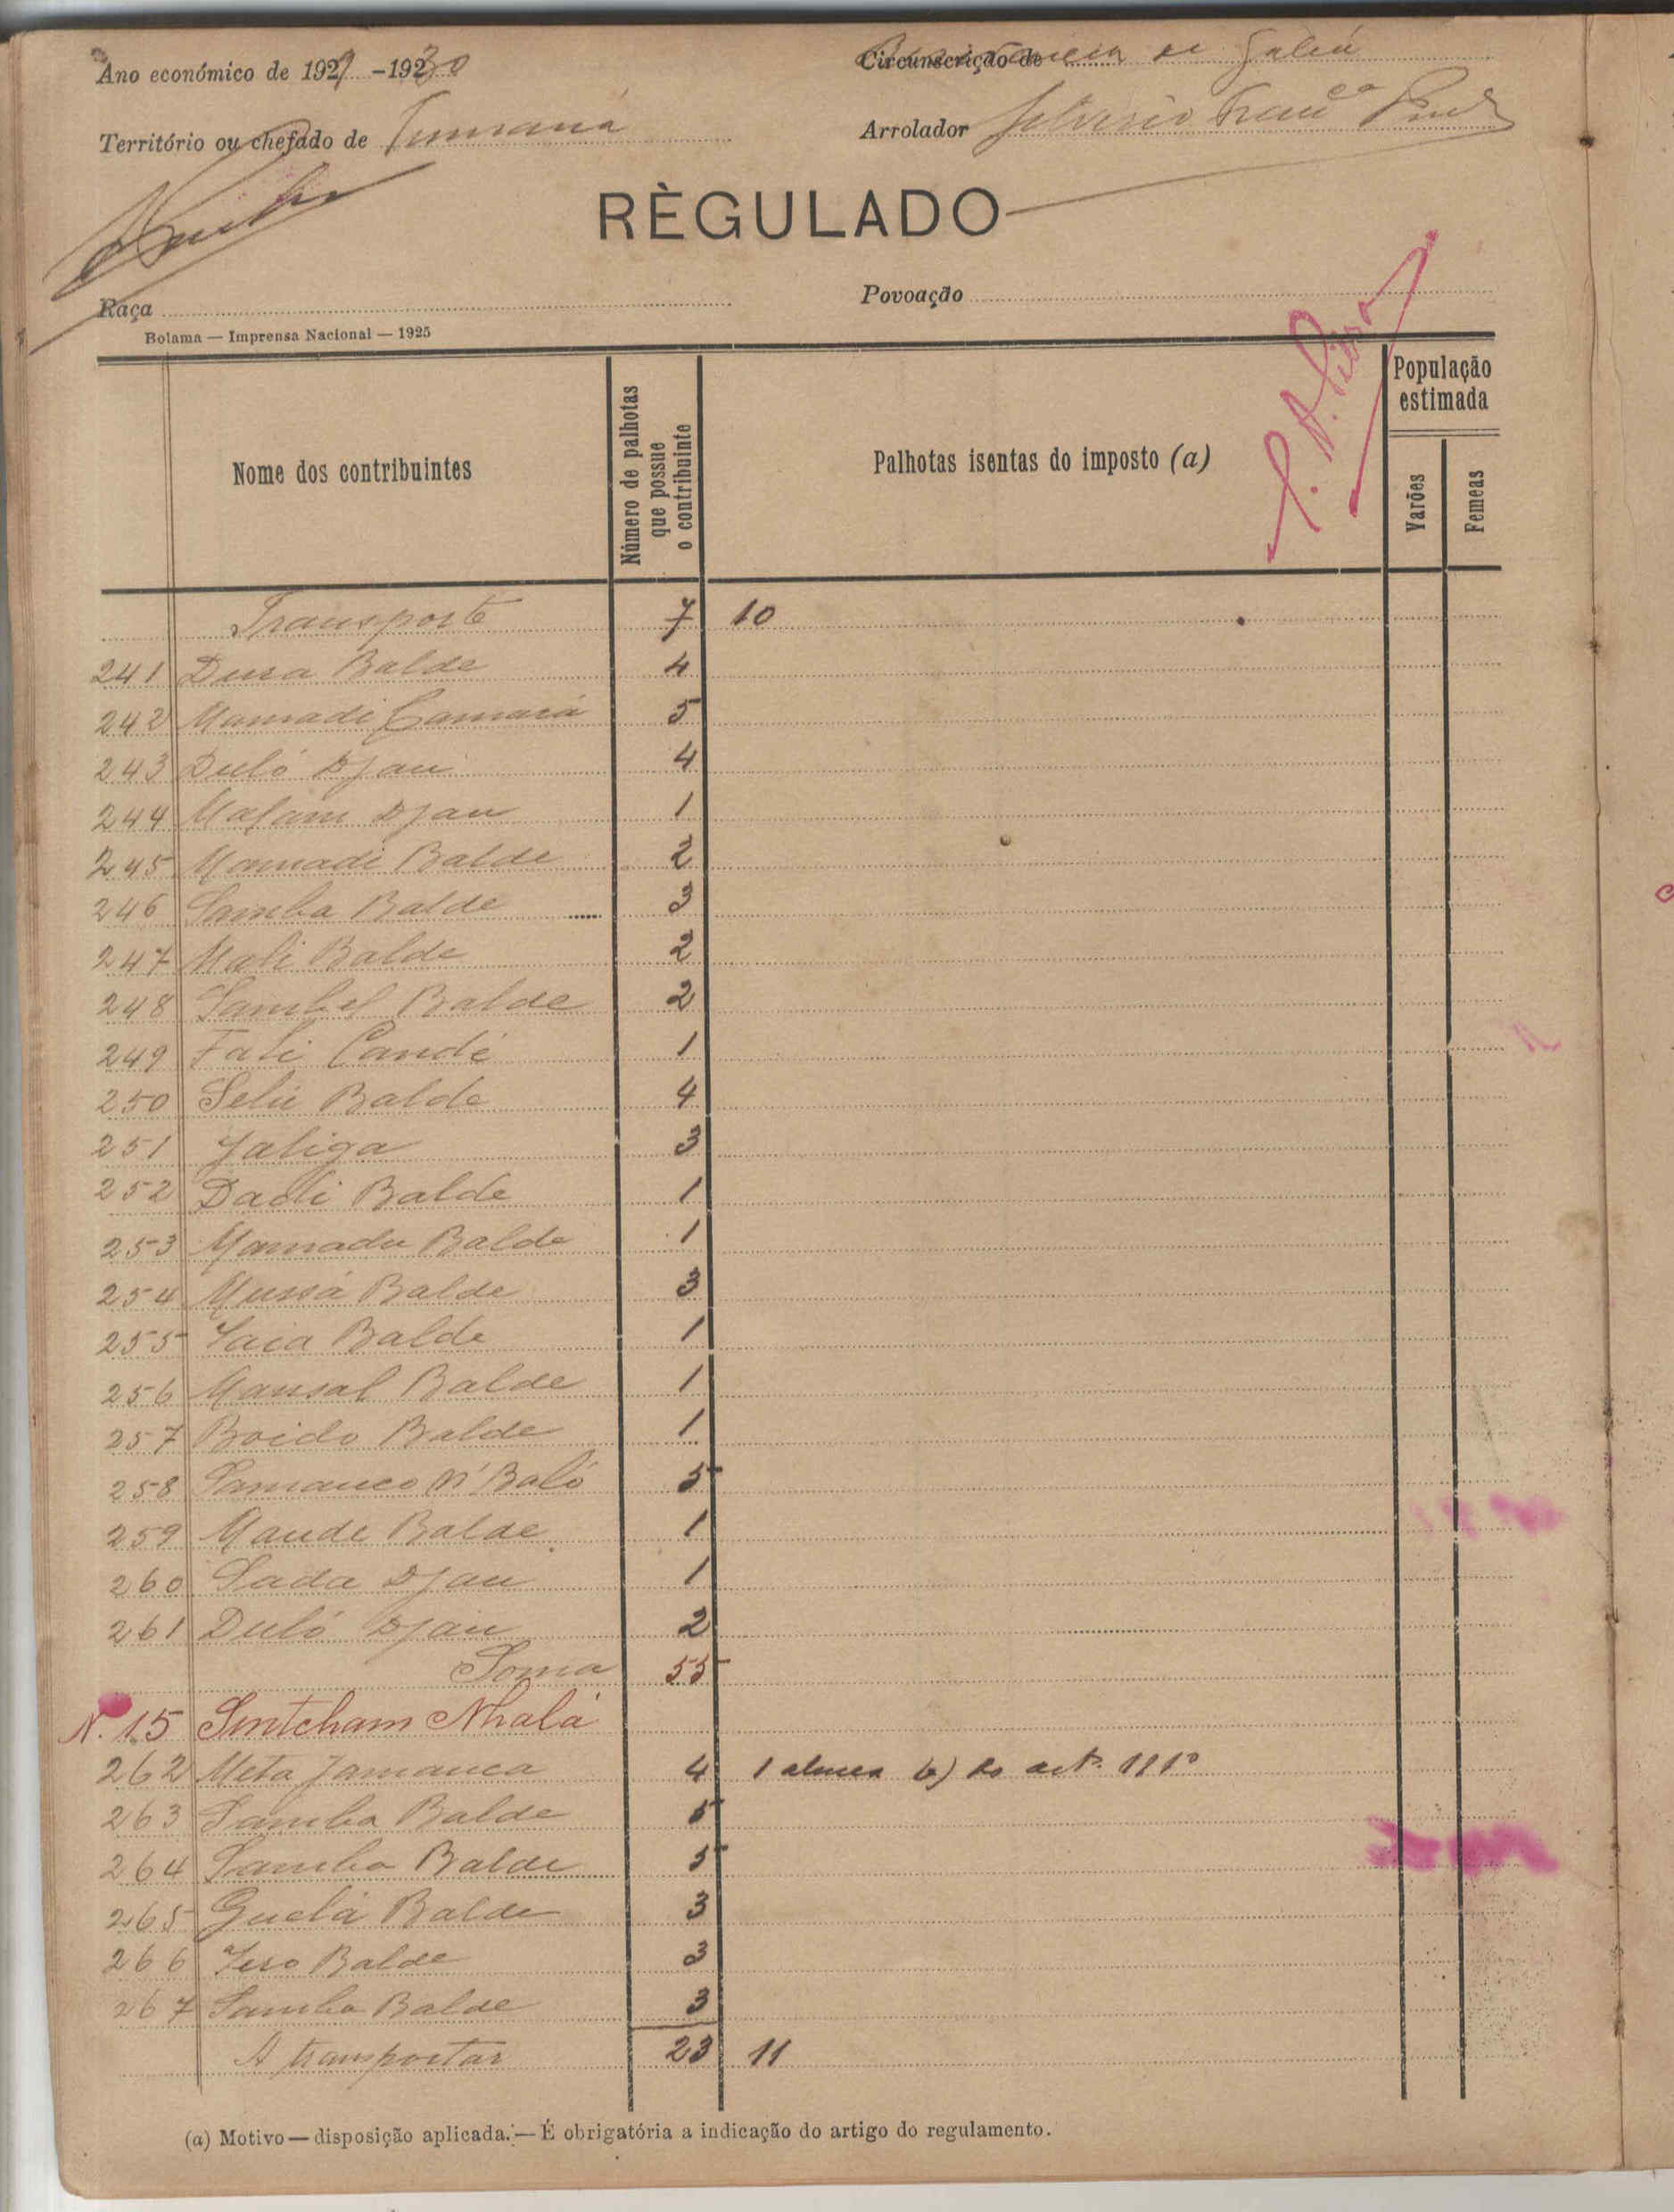 Ano económico de 1929-1930
Circunscrição de
Território ou chefado de Tumaná
Arrolador
RÈGULADO
Raça
Povoação
Bolama — Imprensa Nacional — 1925
Nome dos contribuintes
Número de palhotas que possue o contribuinte
Palhotas isentas do imposto (a)
População estimada
Varões
Femeas
Transporte 7 10
241 Dura Balde 4
242 Mamadi Camará 5
243 Duló Djau 4
244 Malam Djau 1
245 Mamadi Balde 2
246 Samba Balde 3
247 Mali Balde 2
248 Sambel Balde 2
249 Fali Candé 1
250 Seliu Balde 4
251 Jaliga 3
252 Dadi Balde 1
253 Mamadu Balde 1
254 Mussá Balde 3
255 Saia Balde 1
256 Mansal Balde 1
257 Boido Balde 1
258 Samanco N'Baló 5
259 Maude Balde 1
260 Sada Djau 1
261 Duló Djau 2
Soma 55
N. 15 Sintcham Nhalá
262 Meta Jamanca 4 1 alinea b) do art.º 111º
263 Samba Balde 5
264 Samba Balde 5
265 Guelá Balde 3
266 Balde 3
267 Samba Balde 3
A transportar 23 11
(a) Motivo — disposição aplicada. — É obrigatória a indicação do artigo do regulamento.